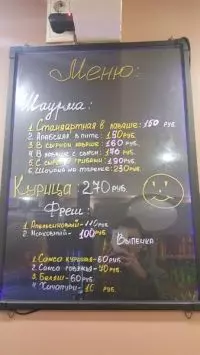 Меню:
Шаурма:
1. Стандартная в лаваше: 150 руб.
2. Арабская в пите: 150 руб.
3. В сырном лаваше: 160 руб.
4. В лаваше с сыром: 170 руб.
5. С сыром и грибами: 190 руб.
6. Шаурма на тарелке: 230 руб.
Курица: 270 руб.
Фреш:
1. Апельсиновый - 110 руб.
2. Морковный - 100 руб.
Выпечка
1. Самса куриная - 60 руб.
2. Самса говяжья - 70 руб.
3. Беляш - 60 руб.
4. Хачапури - 10 руб.